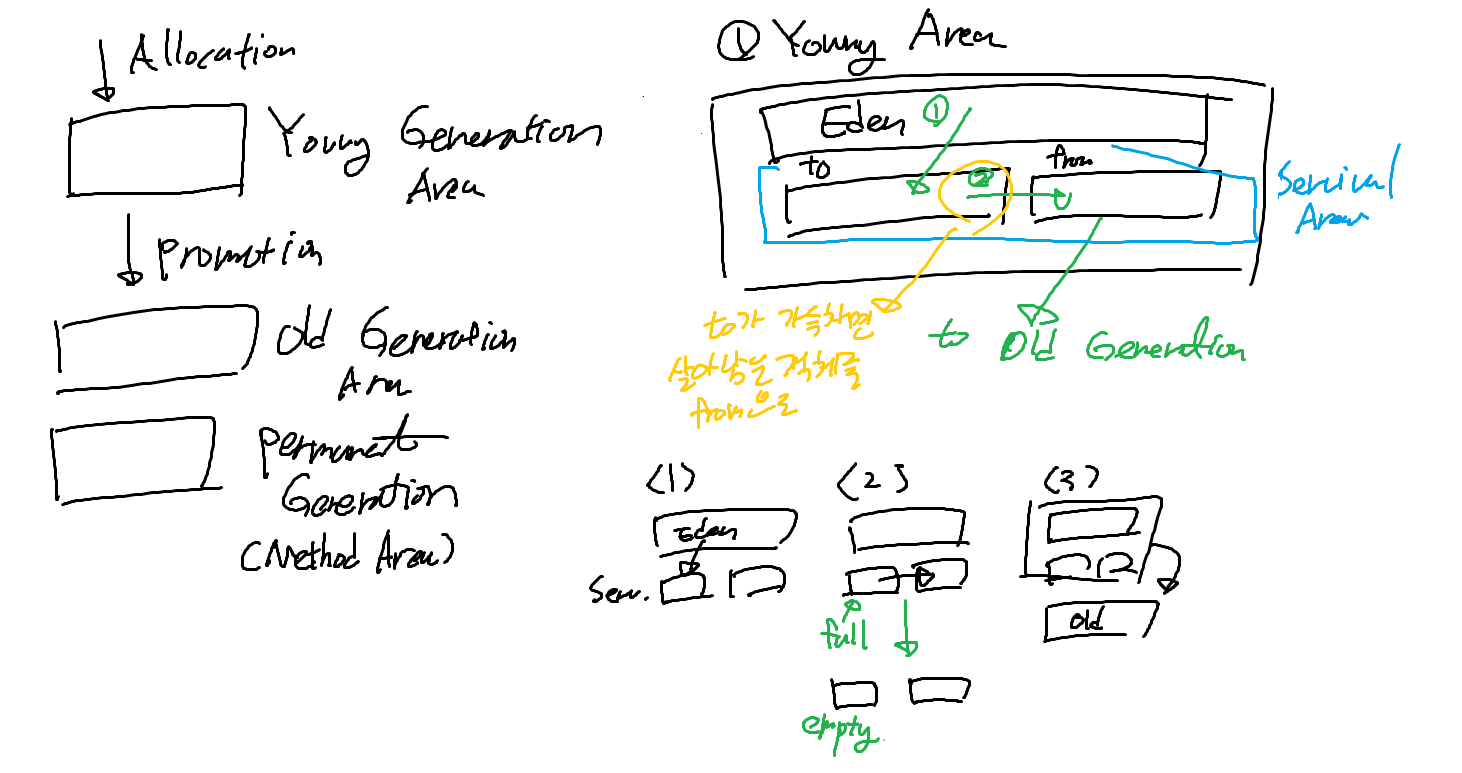 Allocation
Young Generation
Area
Promotion
Old Generation
Area
Permanent
Generation
(Method Area)
① Young Area
Eden ①
to
from
②
Survival
Area
to가 가득차면
살아남은 객체를
from으로
to Old Generation
(1)
Eden
Serv.
(2)
full
empty
(3)
Old